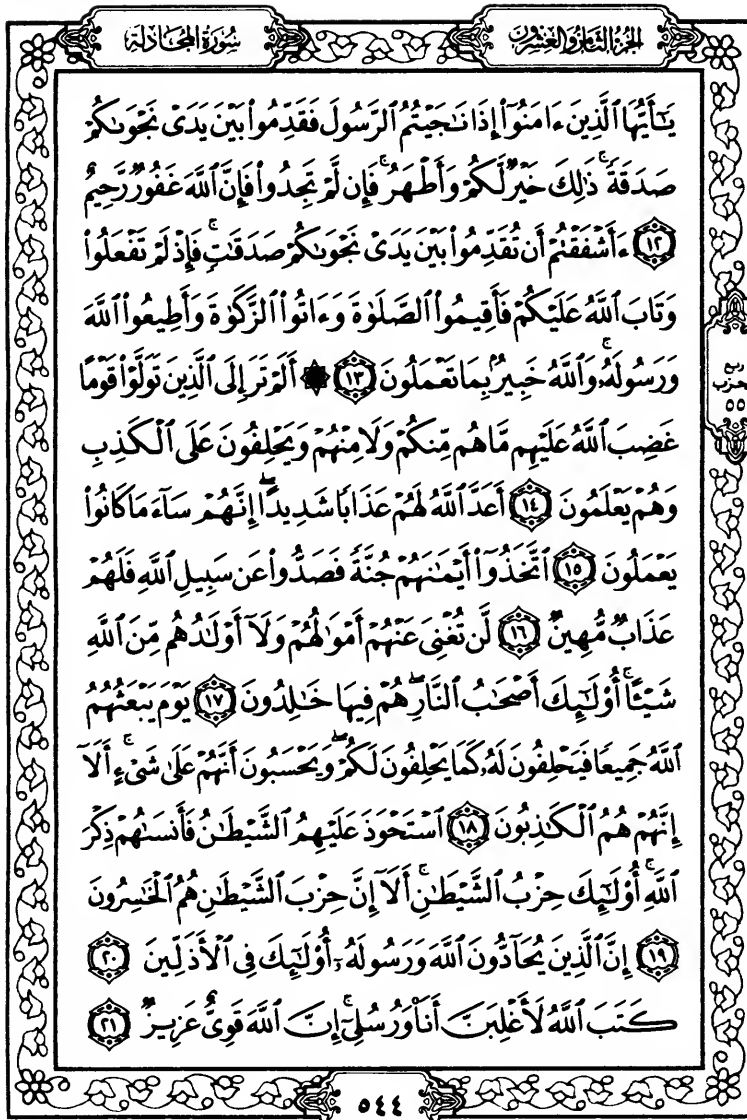 سُورَةُ المُجَادلَة
الجُزءُ الثَّامِنُ وَالعِشْرُونَ
يَٰٓأَيُّهَا ٱلَّذِينَ ءَامَنُوٓاْ إِذَا نَٰجَيْتُمُ ٱلرَّسُولَ فَقَدِّمُواْ بَيْنَ يَدَىْ نَجْوَىٰكُمْ
صَدَقَةً ۚ ذَٰلِكَ خَيْرٌ لَّكُمْ وَأَطْهَرُ ۚ فَإِن لَّمْ تَجِدُواْ فَإِنَّ ٱللَّهَ غَفُورٌ رَّحِيمٌ
١٢ ءَأَشْفَقْتُمْ أَن تُقَدِّمُواْ بَيْنَ يَدَىْ نَجْوَىٰكُمْ صَدَقَٰتٍ ۚ فَإِذْ لَمْ تَفْعَلُواْ
وَتَابَ ٱللَّهُ عَلَيْكُمْ فَأَقِيمُواْ ٱلصَّلَوٰةَ وَءَاتُواْ ٱلزَّكَوٰةَ وَأَطِيعُواْ ٱللَّهَ
وَرَسُولَهُۥ ۚ وَٱللَّهُ خَبِيرٌۢ بِمَا تَعْمَلُونَ ١٣ ۞ أَلَمْ تَرَ إِلَى ٱلَّذِينَ تَوَلَّوْاْ قَوْمًا
غَضِبَ ٱللَّهُ عَلَيْهِم مَّا هُم مِّنكُمْ وَلَا مِنْهُمْ وَيَحْلِفُونَ عَلَى ٱلْكَذِبِ
وَهُمْ يَعْلَمُونَ ١٤ أَعَدَّ ٱللَّهُ لَهُمْ عَذَابًا شَدِيدًا ۖ إِنَّهُمْ سَآءَ مَا كَانُواْ
يَعْمَلُونَ ١٥ ٱتَّخَذُوٓاْ أَيْمَٰنَهُمْ جُنَّةً فَصَدُّواْ عَن سَبِيلِ ٱللَّهِ فَلَهُمْ
عَذَابٌ مُّهِينٌ ١٦ لَّن تُغْنِىَ عَنْهُمْ أَمْوَٰلُهُمْ وَلَآ أَوْلَٰدُهُم مِّنَ ٱللَّهِ
شَيْـًٔا ۚ أُوْلَٰٓئِكَ أَصْحَٰبُ ٱلنَّارِ ۖ هُمْ فِيهَا خَٰلِدُونَ ١٧ يَوْمَ يَبْعَثُهُمُ
ٱللَّهُ جَمِيعًا فَيَحْلِفُونَ لَهُۥ كَمَا يَحْلِفُونَ لَكُمْ ۖ وَيَحْسَبُونَ أَنَّهُمْ عَلَىٰ شَىْءٍ ۚ أَلَآ
إِنَّهُمْ هُمُ ٱلْكَٰذِبُونَ ١٨ ٱسْتَحْوَذَ عَلَيْهِمُ ٱلشَّيْطَٰنُ فَأَنسَىٰهُمْ ذِكْرَ
ٱللَّهِ ۚ أُوْلَٰٓئِكَ حِزْبُ ٱلشَّيْطَٰنِ ۚ أَلَآ إِنَّ حِزْبَ ٱلشَّيْطَٰنِ هُمُ ٱلْخَٰسِرُونَ
١٩ إِنَّ ٱلَّذِينَ يُحَآدُّونَ ٱللَّهَ وَرَسُولَهُۥٓ أُوْلَٰٓئِكَ فِى ٱلْأَذَلِّينَ ٢٠
كَتَبَ ٱللَّهُ لَأَغْلِبَنَّ أَنَا۠ وَرُسُلِىٓ ۚ إِنَّ ٱللَّهَ قَوِىٌّ عَزِيزٌ ٢١
ربع
الحزب
٥٥
٥٤٤